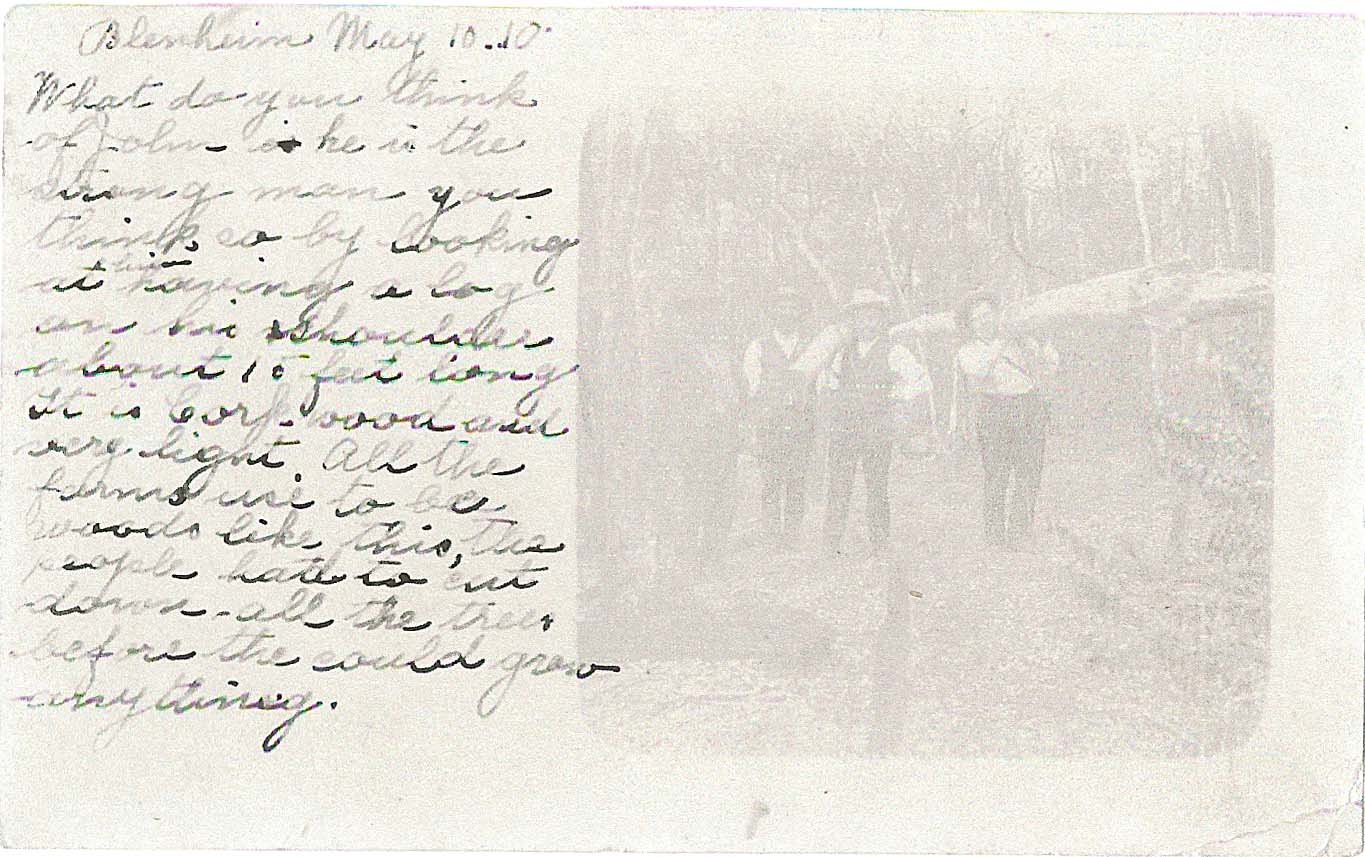 Blenheim May 10..10.
What do you think
of John is he is the
strong man you
think so by looking
at having a log
on his shoulder
about 15 feet long
It is Cork wood and
very light. All the
farms use to be
woods like this, the
people hatto cut
down-all the trees
before the could grow
anything.